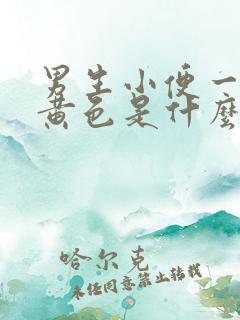 男生小便一
黄色是什麼
哈尔克
未经同意禁止转载